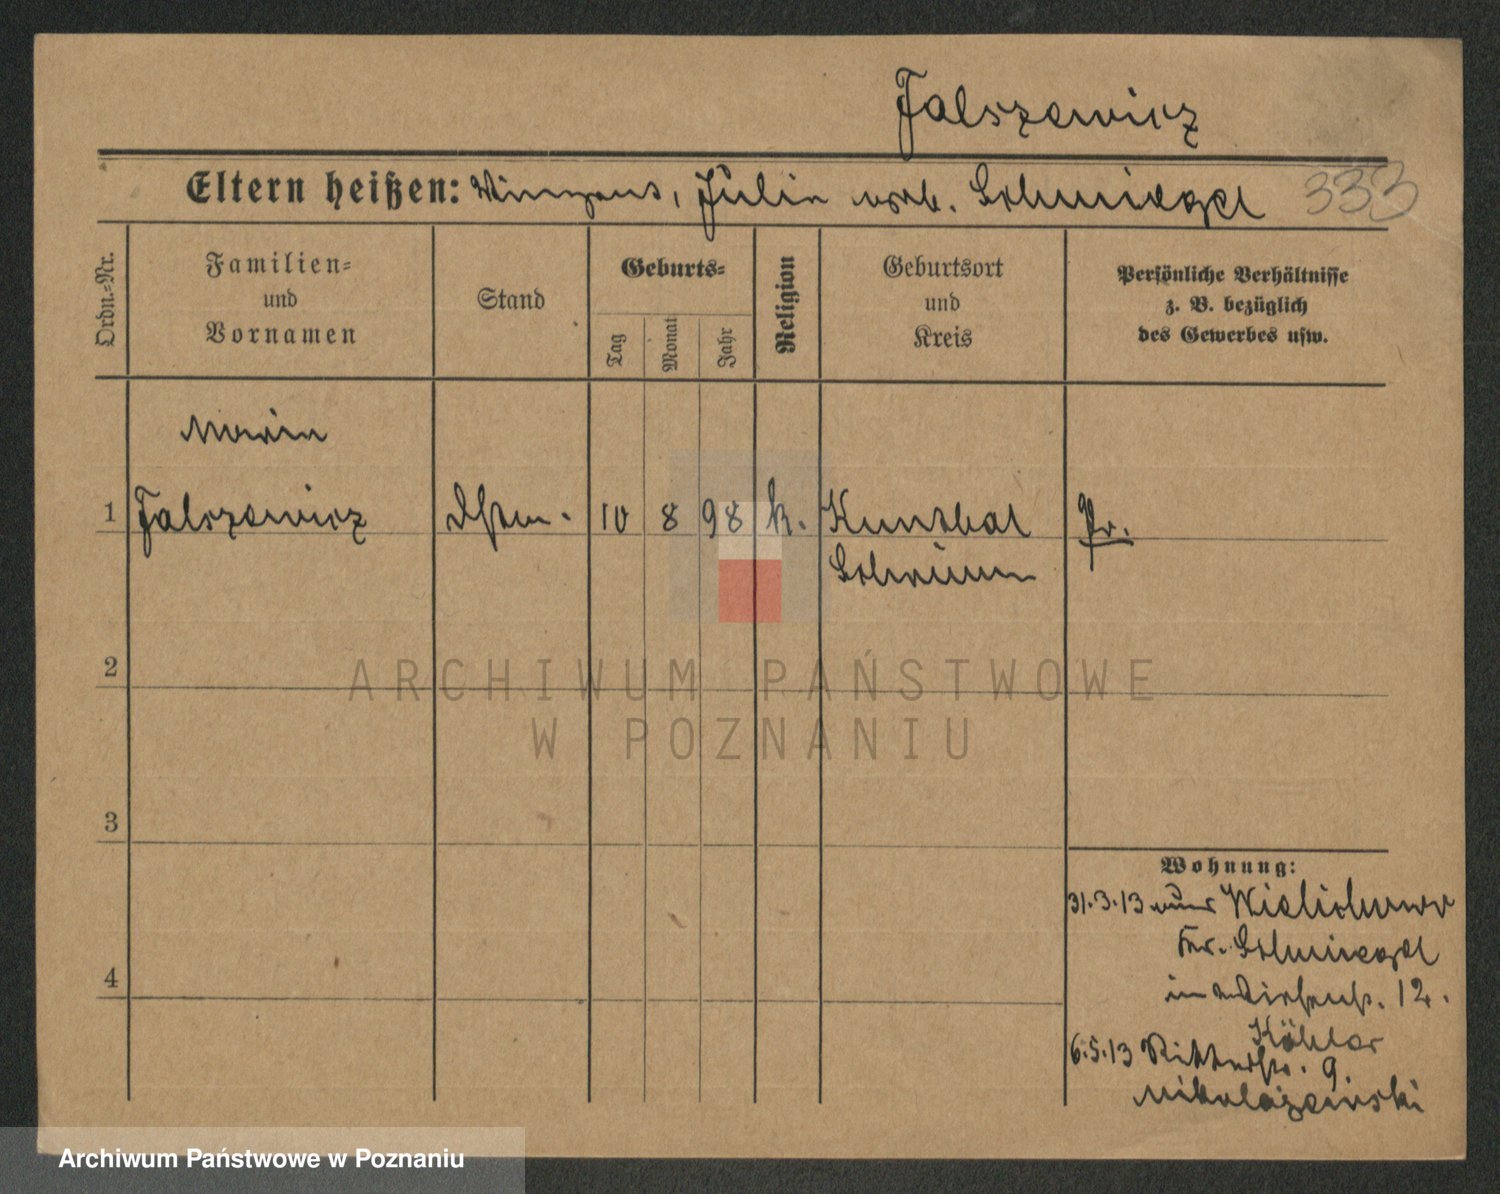 Falszewicz
Eltern heißen: Vinzens, Julia verh. Schmiegel 333
Ordn.-Nr.
Familien-
und
Vornamen
Stand
Geburts-
Tag
Monat
Jahr
Religion
Geburtsort
und
Kreis
Persönliche Verhältnisse
z. B. bezüglich
des Gewerbes usw.
Maria
1 Falszewicz 10 8 98 k. Kunthal Pr.
Schrimm
2
3
4
Wohnung:
31.3.13 aus Wielichowo
Kr. Schmiegel
in 12.
Köhler
6.5.13 Ritterstr. 9.
Mikolajzewski
ARCHIWUM PAŃSTWOWE
W POZNANIU
Archiwum Państwowe w Poznaniu